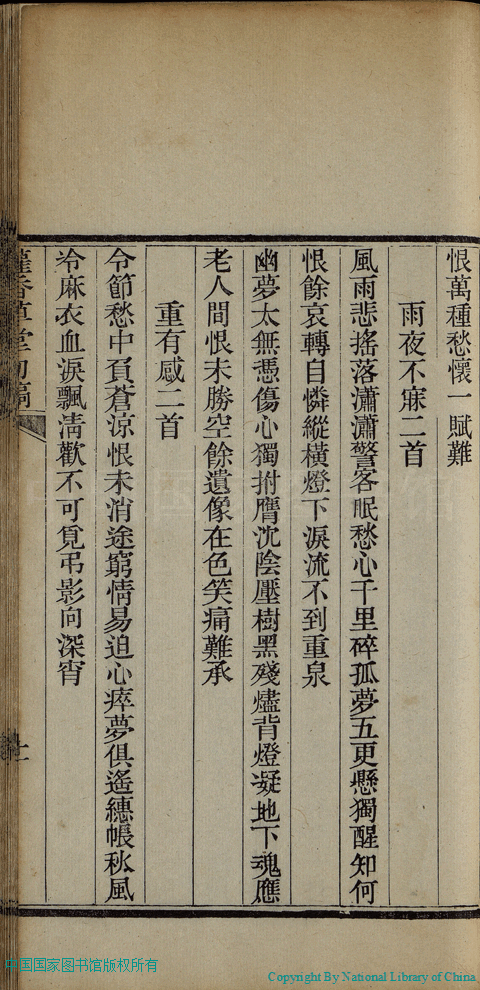 恨萬種愁懷一賦難
雨夜不寐二首
風雨悲搖落瀟瀟警客眠愁心千里碎孤夢五更懸獨醒知何
恨餘哀轉自憐縱橫燈下淚流不到重泉
幽夢太無憑傷心獨拊膺沈陰壓樹黑殘燼背燈凝地下魂應
老人間恨未勝空餘遺像在色笑痛難承
重有感二首
令節愁中負蒼涼恨未消途窮情易迫心瘁夢俱遙繐帳秋風
冷麻衣血淚飄淸歡不可覓弔影向深宵
香草堂初稿
十一
中国国家图书馆版权所有
Copyright By National Library of China